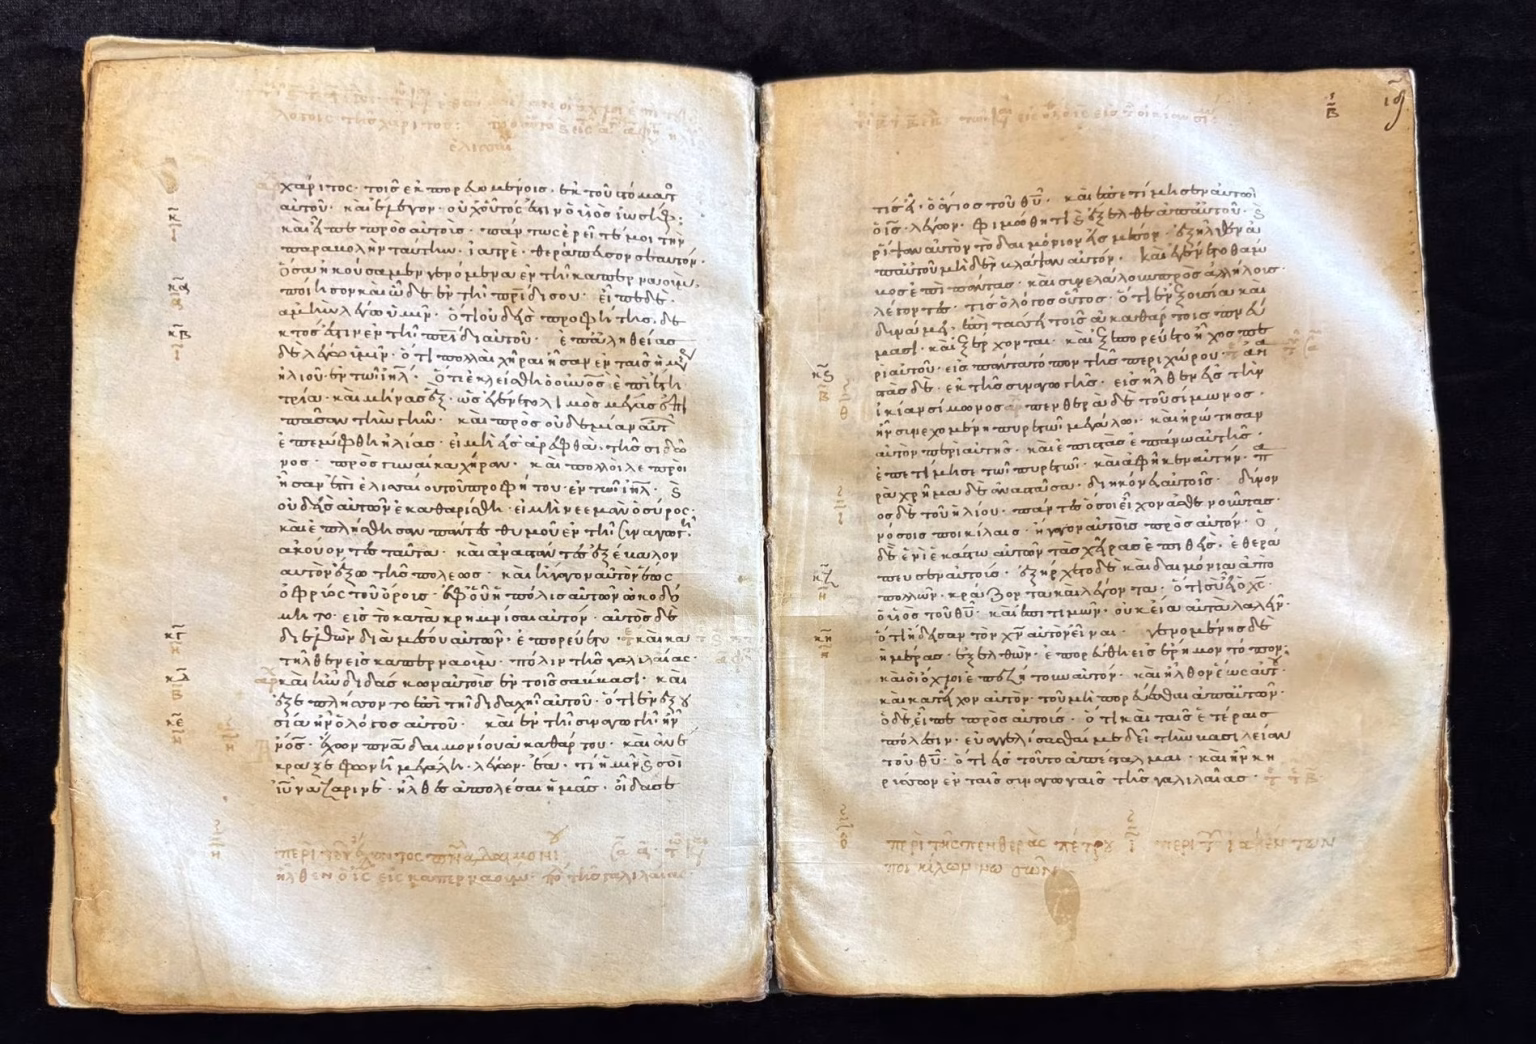 χάριτος· τοῖς ἐκπορευομένοις· ἐκ τοῦ στόματ
αὐτοῦ· καὶ ἔλεγον· οὐχ οὗτός ἐστιν ὁ υἱὸς ἰωσήφ;
καὶ εἶπε πρὸς αὐτούς· πάντως ἐρεῖτέ μοι τὴν
παραβολὴν ταύτην· ἰατρὲ· θεράπευσον σεαυτόν·
ὅσα ἠκούσαμεν γενόμενα ἐν τῇ καπερναούμ·
ποίησον καὶ ὧδε ἐν τῇ πρίδι σου· εἶπε δε·
ἀμὴν λέγω ὑμῖν· ὅτι οὐδεὶς προφήτης δε
κτός ἐστιν ἐν τῇ πρίδι αὐτοῦ· ἐπ ἀληθείας
δὲ λέγω ὑμῖν· ὅτι πολλαὶ χῆραι ἦσαν ἐν ταῖς ἡμ
ἠλιοῦ· ἐν τῷ ιηλ· ὅτε ἐκλείσθη ὁ οὐνος ἐπὶ ἔτη
τρία· καὶ μῆνας ἓξ· ὡς ἐγένετο λιμὸς μέγας ἐπὶ
πᾶσαν τὴν γῆν· καὶ πρὸς οὐδεμίαν αὐτ
ἐπέμφθη ἠλίας· εἰ μὴ εἰς σάρεφθα· τῆς σιδῶ
νος· πρὸς γυναῖκα χήραν· καὶ πολλοὶ λεπροὶ
ἦσαν ἐπὶ ἐλισαίου τοῦ προφήτου· ἐν τῷ ιηλ· καὶ
οὐδεὶς αὐτῶν ἐκαθαρίσθη· εἰ μὴ νεεμὰν ὁ σύρος·
καὶ ἐπλήσθησαν πάντες θυμοῦ ἐν τῇ συναγωγῇ
ἀκούοντες ταῦτα· καὶ ἀναστάντες ἐξέβαλον
αὐτὸν ἔξω τῆς πόλεως· καὶ ἤγαγον αὐτὸν ἕως
ὀφρύος τοῦ ὄρους· ἐφ οὗ ἡ πόλις αὐτῶν ὠκοδό
μητο· εἰς τὸ κατακρημνίσαι αὐτόν· αὐτὸς δὲ
διελθὼν διὰ μέσου αὐτῶν· ἐπορεύετο· καὶ κα
τῆλθεν εἰς καπερναοὺμ· πόλιν τῆς γαλιλαίας·
καὶ ἦν διδάσκων αὐτοὺς ἐν τοῖς σάββασι· καὶ
ἐξεπλήσσοντο ἐπὶ τῇ διδαχῇ αὐτοῦ· ὅτι ἐν ἐξου
σίᾳ ἦν ὁ λόγος αὐτοῦ· καὶ ἐν τῇ συναγωγῇ ἦν
ἀνος· ἔχων πνα δαιμονίου ἀκαθάρτου· καὶ ἀνέ
κραξε φωνῇ μεγάλῃ· λέγων· ἔα· τί ἡμῖν καὶ σοὶ
ιυ ναζαρινέ· ἦλθες ἀπολέσαι ἡμᾶς· οἶδά σε
περὶ τοῦ ἔχοντος πνα δαιμονίου
ἦλθεν ὁ ις εἰς καπερναούμ· πό τῆς γαλιλαίας
τίς εἶ· ὁ ἅγιος τοῦ θυ· καὶ ἐπετίμησεν αὐτῷ
ὁ ις· λέγων· φιμώθητι καὶ ἔξελθε ἀπ αὐτοῦ· καὶ
ρίψαν αὐτὸν τὸ δαιμόνιον εἰς μέσον· ἐξῆλθεν ἀ
π αὐτοῦ μηδὲν βλάψαν αὐτόν· καὶ ἐγένετο θάμ
βος ἐπὶ πάντας· καὶ συνελάλουν πρὸς ἀλλήλους·
λέγοντες· τίς ὁ λόγος οὗτος· ὅτι ἐν ἐξουσίᾳ καὶ
δυνάμει· ἐπιτάσσει τοῖς ἀκαθάρτοις πνεύ
μασι· καὶ ἐξέρχονται· καὶ ἐξεπορεύετο ἦχος πε
ρὶ αὐτοῦ· εἰς πάντα τόπον τῆς περιχώρου· ἀνα
στὰς δὲ· ἐκ τῆς συναγωγῆς· εἰσῆλθεν εἰς τὴν
οἰκίαν σίμωνος· πενθερὰ δὲ τοῦ σίμωνος·
ἦν συνεχομένη πυρετῷ μεγάλῳ· καὶ ἠρώτησαν
αὐτὸν περὶ αὐτῆς· καὶ ἐπιστὰς ἐπάνω αὐτῆς·
ἐπετίμησε τῷ πυρετῷ· καὶ ἀφῆκεν αὐτήν· πα
ραχρῆμα δὲ ἀναστᾶσα· διηκόνει αὐτοῖς· δύνον
τος δὲ τοῦ ἡλίου· πάντες ὅσοι εἶχον ἀσθενοῦντας·
νόσοις ποικίλαις· ἤγαγον αὐτοὺς πρὸς αὐτόν· ὁ
δὲ ἑνὶ ἑκάστῳ αὐτῶν τὰς χεῖρας ἐπιθεὶς· ἐθερά
πευσεν αὐτούς· ἐξήρχετο δὲ καὶ δαιμόνια ἀπὸ
πολλῶν· κράζοντα καὶ λέγοντα· ὅτι σὺ εἶ ὁ χς·
ὁ υἱὸς τοῦ θυ· καὶ ἐπιτιμῶν· οὐκ εἴα αὐτὰ λαλεῖν·
ὅτι ᾔδεισαν τὸν χν αὐτὸν εἶναι· γενομένης δὲ
ἡμέρας· ἐξελθὼν· ἐπορεύθη εἰς ἔρημον τόπον·
καὶ οἱ ὄχλοι ἐπεζήτουν αὐτόν· καὶ ἦλθον ἕως αὐτοῦ·
καὶ κατεῖχον αὐτὸν· τοῦ μὴ πορεύεσθαι ἀπ αὐτῶν·
ὁ δὲ εἶπε πρὸς αὐτούς· ὅτι καὶ ταῖς ἑτέραις
πόλεσιν· εὐαγγελίσασθαί με δεῖ τὴν βασιλείαν
τοῦ θυ· ὅτι εἰς τοῦτο ἀπέσταλμαι· καὶ ἦν κη
ρύσσων ἐν ταῖς συναγωγαῖς τῆς γαλιλαίας·
περὶ τῆς πενθερᾶς πέτρου περὶ τ ἰαθέντων
ποικίλων νόσων